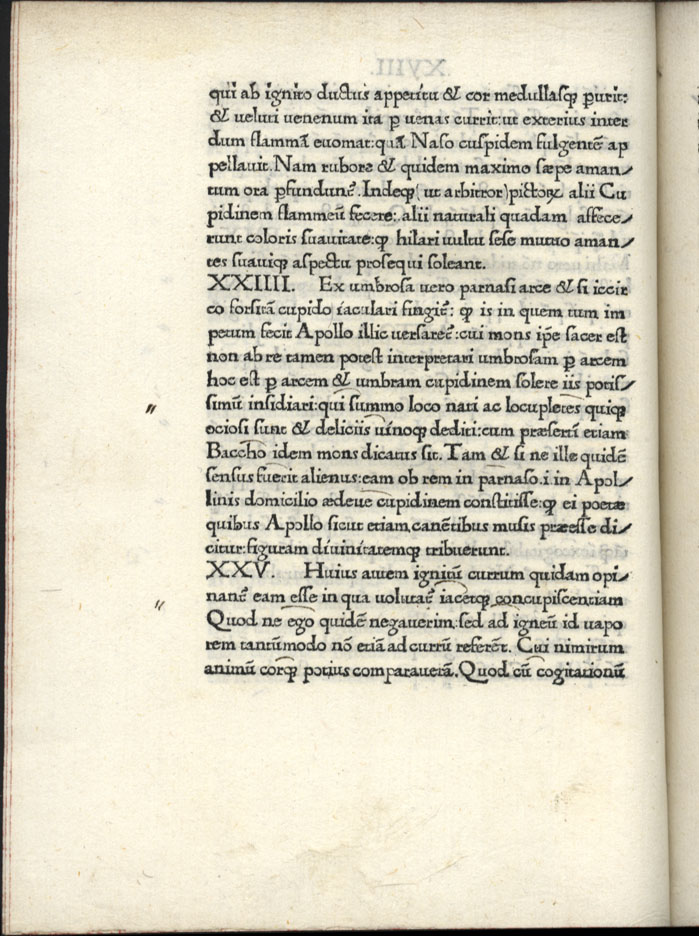 qui ab ignito ductus appetitu & cor medullasqꝫ ꝑurit:
& ueluti uenenum ita ꝑ uenas currit:ut exterius inter
dum flammā euomat:quā Naso cuspidem fulgentē ap
pellauit. Nam rubore & quidem maximo sæpe aman/
tum ora ꝓfundunť. Indeqꝫ( ut arbitror)pictorꝝ alii Cu
pidinem flammeū fecere: alii naturali quadam affece/
runt coloris suauitate:ꝙ hilari uultu sese mutuo aman/
tes suauiqꝫ aspectu prosequi soleant.
XXIIII. Ex umbrosa uero parnasi arce & si iccir
co forsitā cupido iaculari fingiť: ꝙ is in quem tum im
petum fecit Apollo illic uersareť:cui mons ipē sacer est
non ab re tamen potest interpretari umbrosam ꝑ arcem
hoc est ꝑ arcem & umbram cupidinem solere iis potis/
simū insidiari:qui summo loco nati ac locupletes quiqꝫ
ociosi sunt & deliciis uinoqꝫ dediti:cum præsertī etiam
Baccho idem mons dicatus sit. Tam & si ne ille quidē
sensus fuerit alienus:eam ob rem in parnaso.i.in Apol/
linis domicilio ædeue cupidinem constitisse:ꝙ ei poetæ
quibus Apollo sicut etiam canētibus musis præesse di/
citur:figuram diuinitatemqꝫ tribuerunt.
XXV. Huius autem ignitū currum quidam opi/
nanť eam esse in qua uolutať iacetqꝫ concupiscentiam
Quod ne ego quidē negauerim:sed ad igneū id uapo
rem tantūmodo nō etiā ad currū referēt. Cui nimirum
animū corqꝫ potius comparauerā. Quod cū cogitationū